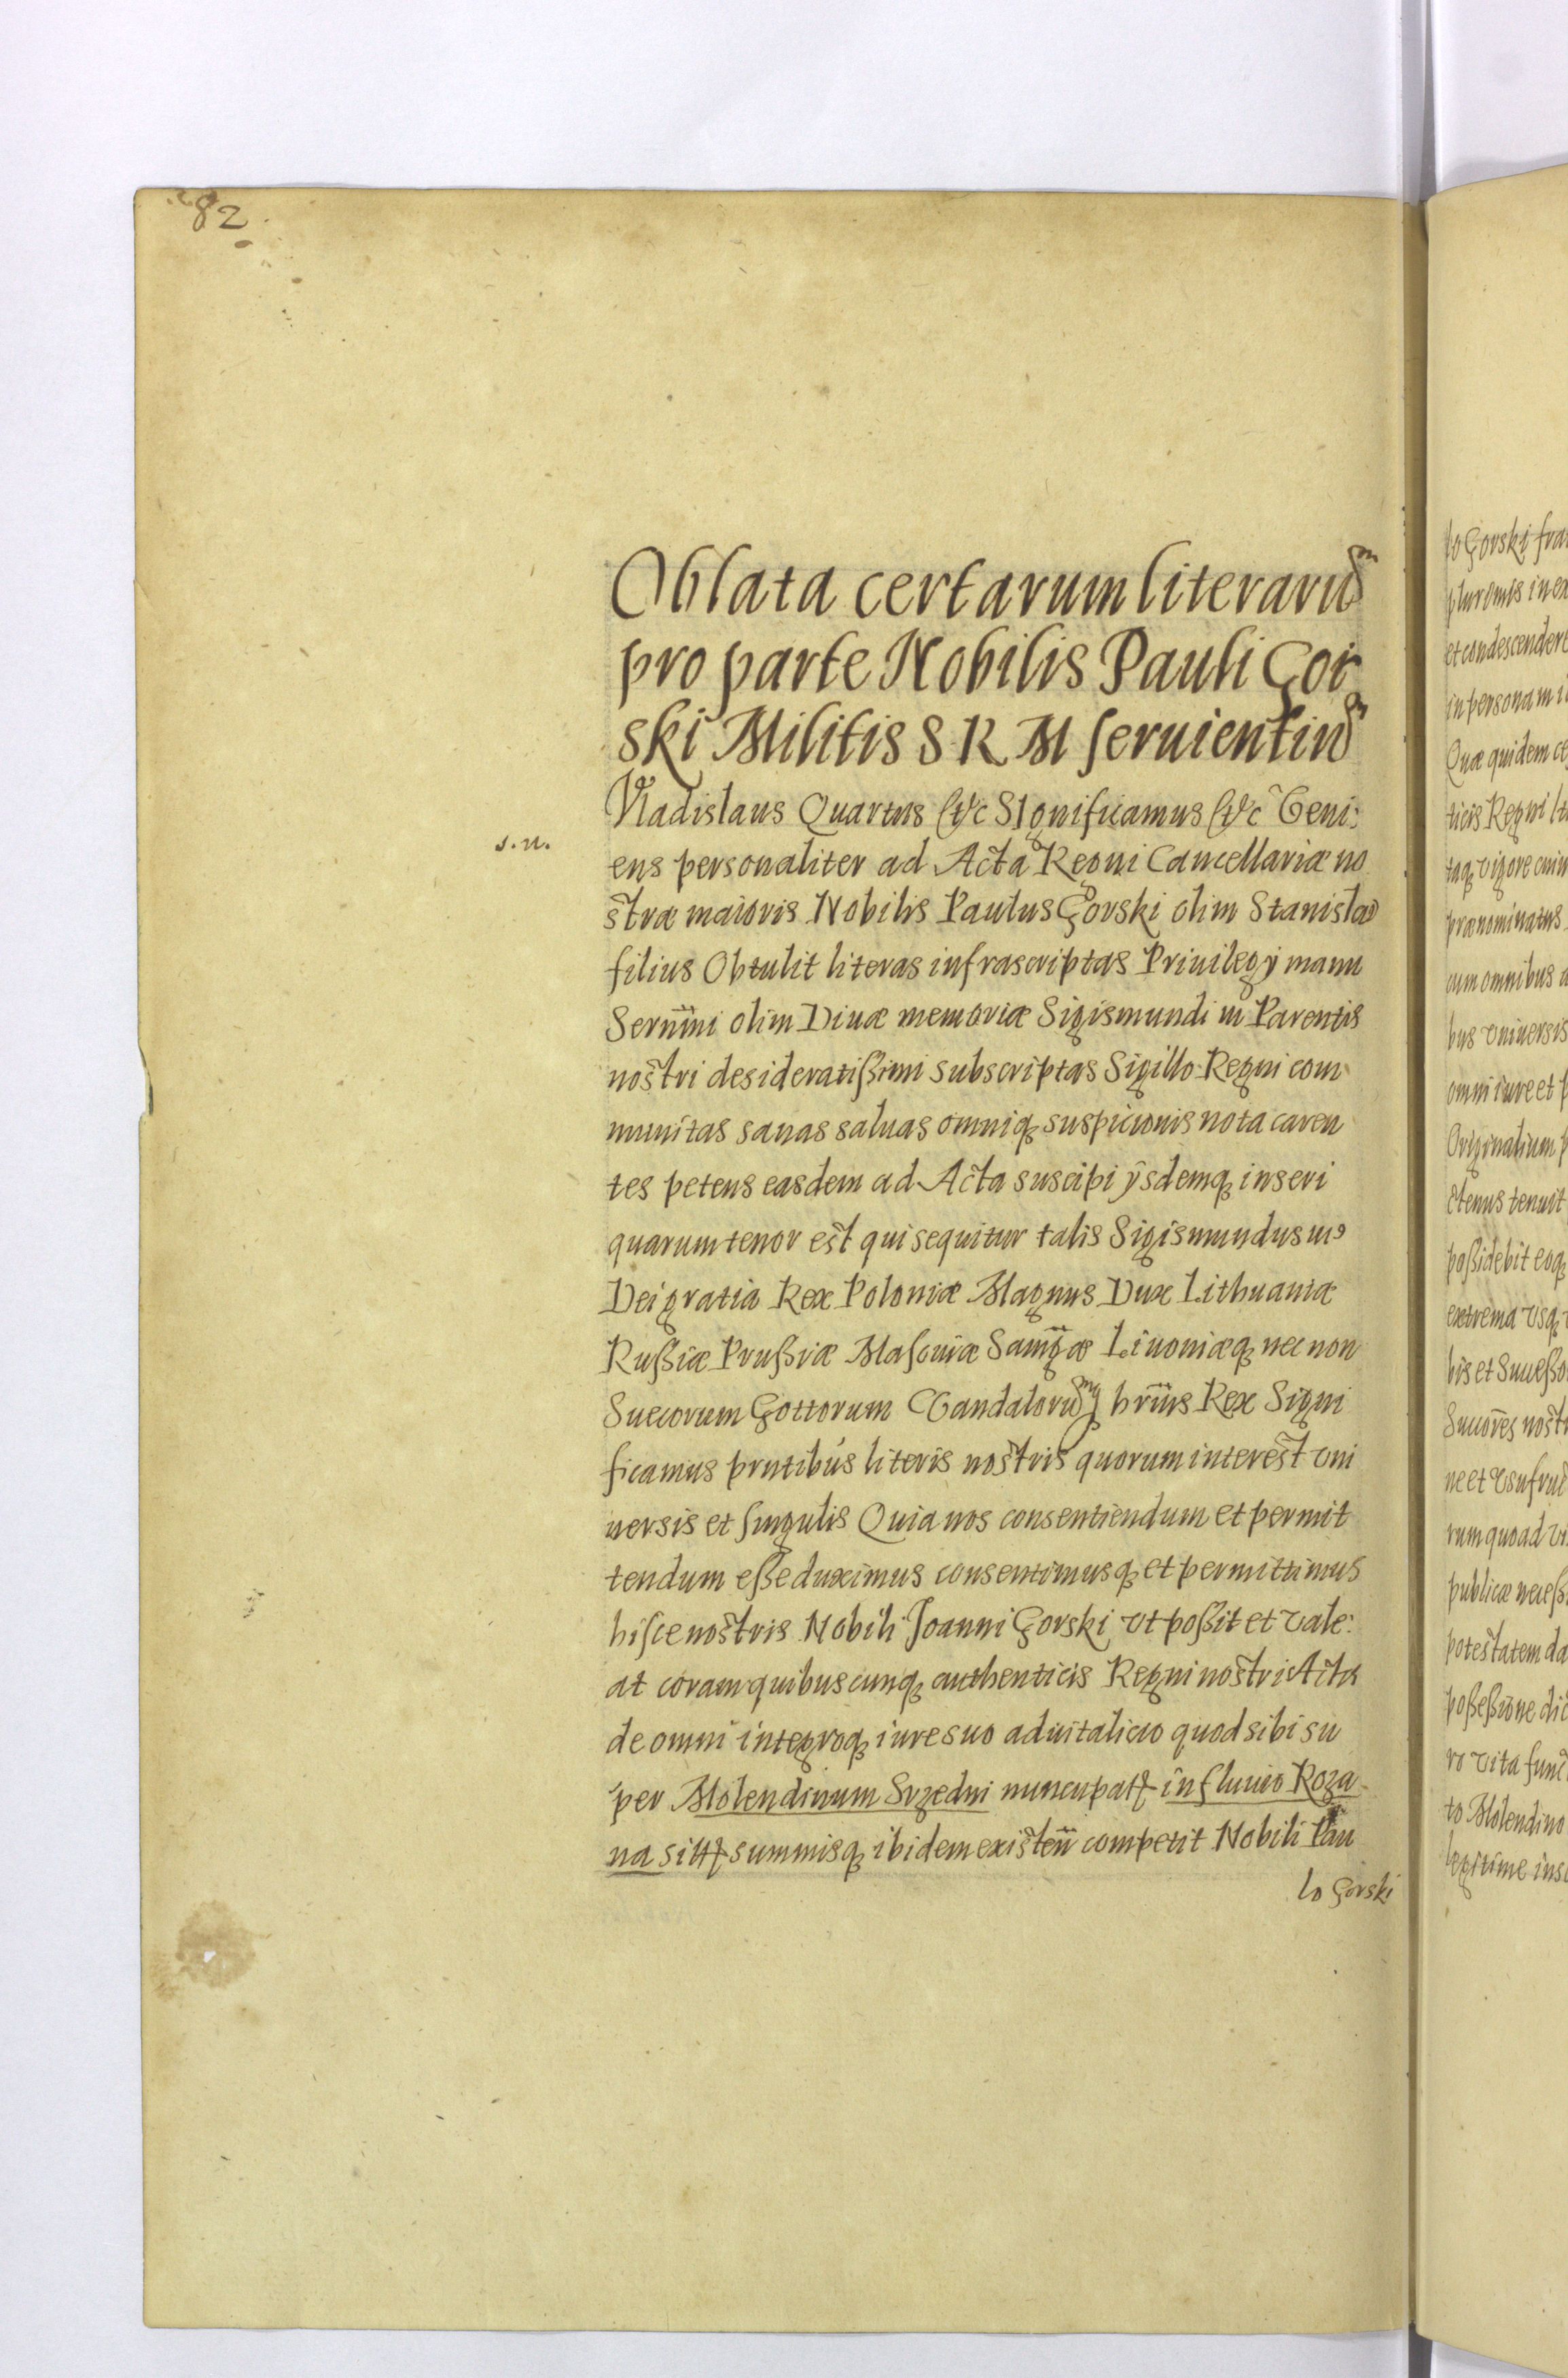 82
Oblata certarum literarum
pro parte Nobilis Pauli Gor
ski Militis S R M seruientium
Vladislaus Quartus &c Significamus &c Veni:
s. n.
ens personaliter ad Acta Regni Cancellariæ no
stræ maioris Nobilis Paulus Gorski olim Stanislai
filius Obtulit literas infrascriptas Priuilegÿ manu
Sernīni olim Diuæ memoriæ Sigismundi III Parentis
nostri desideratißimi subscriptas Sigillo Regni com
munitas sanas saluas omniq; suspicionis nota caren
tes petens easdem ad Acta suscipi ÿsdemq; inseri
quarum tenor est qui sequitur talis Sigismundus III9
Dei gratia Rex Poloniæ Magnus Dux Lithuaniæ
Rußiæ Prußiæ Masouiæ Samgæ Liuoniæq; nec non
Suecorum Gottorum Vandalorumq; hrius Rex Signi
ficamus prntibus literis nostris quorum interest vni
uersis et singulis Quia nos consentiendum et permit
tendum eße duximus consentimusq; et permittimus
hisce nostris Nobili Joanni Gorski vt poßit et vale:
at coram quibuscunq; authenticis Regni nostri Actis
de omni integroq; iure suo aduitalicio quod sibi su
per Molendinum Srzedni nuncupatt in fluuio Roza
na sitt summisq; ibidem existen competit Nobili Pau
lo Gorski
lo Gorski fra
plurimis in ex
et condescendere
in personam i
Quæ quidem ce
ticis Regni
taq; vigore cuiu
prænominatus
cum omnibus a
bus vniuersis
omni iure et p
Originalium p
ctenus tenuit
poßidebit eoq;
extrema vsq;
bis et Succeßo
Succores nost
ne et vsufruc
rum quoad vi
publicæ neceß
potestatem da
poßeßione dic
ro vita func
to Molendino
legitime ins